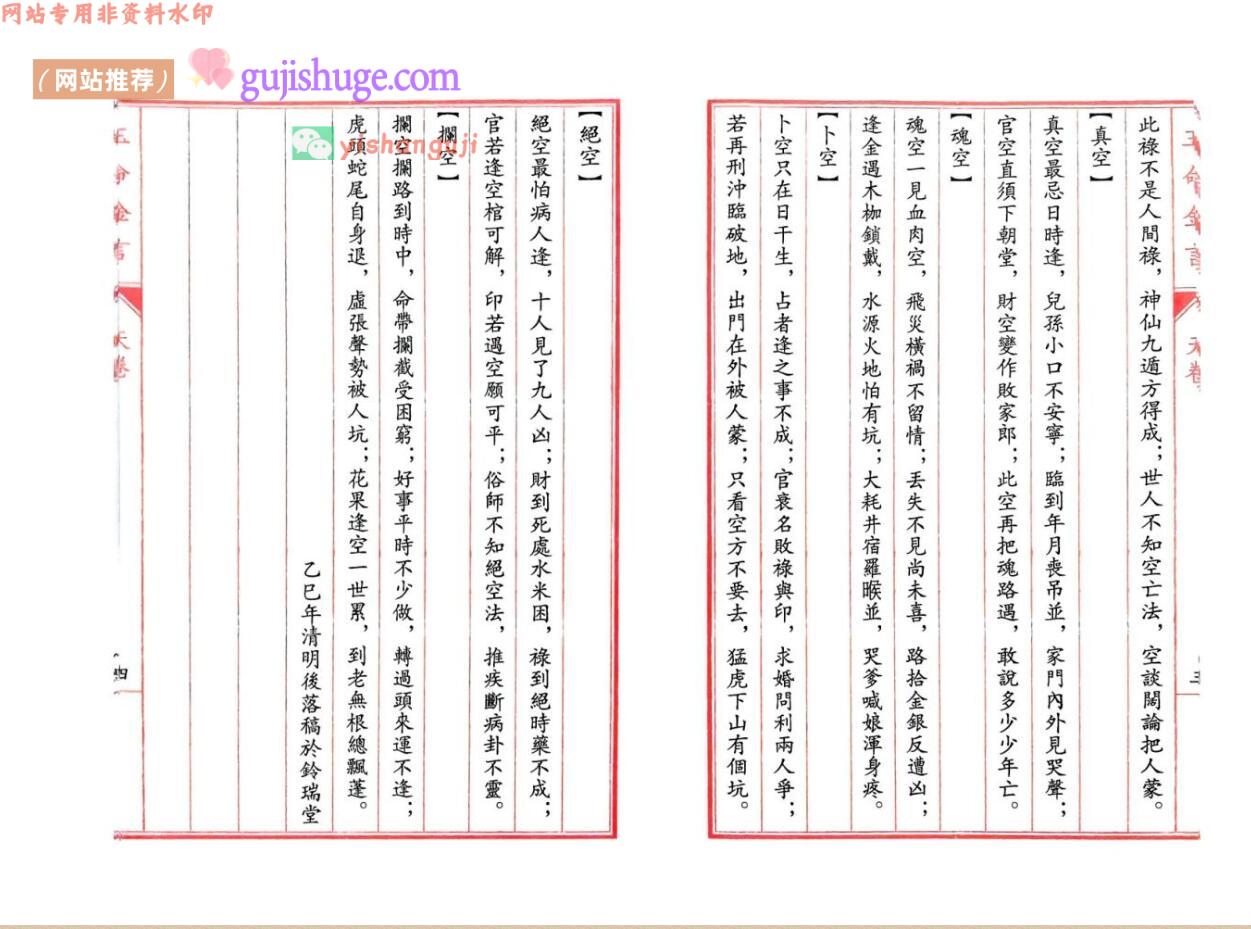 网站专用非资料水印
（网站推荐）
gujishuge.com
yishanguji
此祿不是人間祿，神仙九遁方得成；世人不知空亡法，空談闊論把人蒙。
【真空】
真空最忌日時逢，兒孫小口不安寧；臨到年月喪吊並，家門內外見哭聲；
官空直須下朝堂，財空變作敗家郎；此空再把魂路遇，敢說多少少年亡。
【魂空】
魂空一見血肉空，飛災橫禍不留情；丟失不見尚未喜，路拾金銀反遭凶；
逢金遇木枷鎖戴，水源火地怕有坑；大耗井宿羅睺並，哭爹喊娘渾身疼。
【卜空】
卜空只在日干生，占者逢之事不成；官衰名敗祿與印，求婚問利兩人爭；
若再刑沖臨破地，出門在外被人蒙；只看空方不要去，猛虎下山有個坑。
【絕空】
絕空最怕病人逢，十人見了九人凶；財到死處水米困，祿到絕時藥不成；
官若逢空棺可解，印若遇空願可平；俗師不知絕空法，推疾斷病卦不靈。
【攔空】
攔空攔路到時中，命帶攔截受困窮；好事平時不少做，轉過頭來運不逢；
虎頭蛇尾自身退，虛張聲勢被人坑；花果逢空一世累，到老無根總飄蓬。
乙巳年清明後落稿於鈴瑞堂
天卷
四